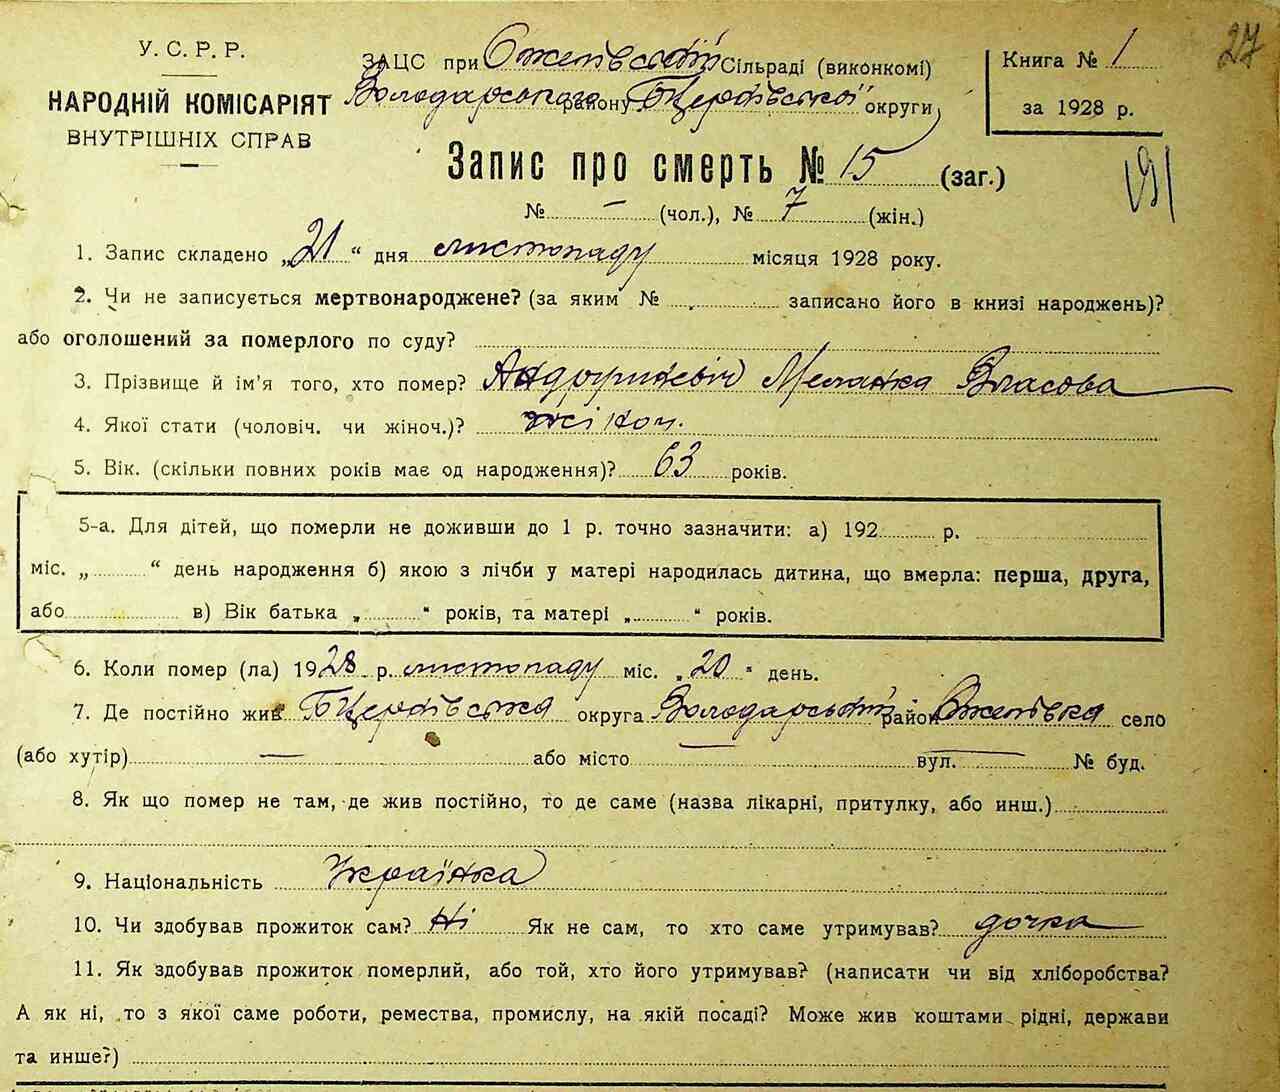 27
У. С. Р. Р.
НАРОДНІЙ КОМІСАРІЯТ
ВНУТРІШНІХ СПРАВ
ЗАЦС при Ожегівській Сільраді (виконкомі)
Володарського району БЦерківської округи
Книга № 1
за 1928 р.
Запис про смерть № 15 (заг.)
№ — (чол.), № 7 (жін.)
1. Запис складено „21“ дня листопаду місяця 1928 року.
2. Чи не записується мертвонароджене? (за яким № записано його в книзі народжень)?
або оголошений за померлого по суду?
3. Прізвище й ім'я того, хто помер? Меланка Власова
4. Якої статі (чоловіч. чи жіноч.)? жіноч.
5. Вік. (скільки повних років має од народження)? 63 років.
5-а. Для дітей, що померли не доживши до 1 р. точно зазначити: а) 192 р.
міс. „ “ день народження б) якою з лічби у матері народилась дитина, що вмерла: перша, друга,
або в) Вік батька „ “ років, та матері „ “ років.
6. Коли помер (ла) 1928 р. листопаду міс. „20“ день.
7. Де постійно жив БЦерківська округа Володарський район Ожегівка село
(або хутір) — або місто — вул. — № буд.
8. Як що помер не там, де жив постійно, то де саме (назва лікарні, притулку, або инш.)
9. Національність Українка
10. Чи здобував прожиток сам? Ні Як не сам, то хто саме утримував? дочка
11. Як здобував прожиток померлий, або той, хто його утримував? (написати чи від хліборобства?
А як ні, то з якої саме роботи, ремества, промислу, на якій посаді? Може жив коштами рідні, держави
та инше?)